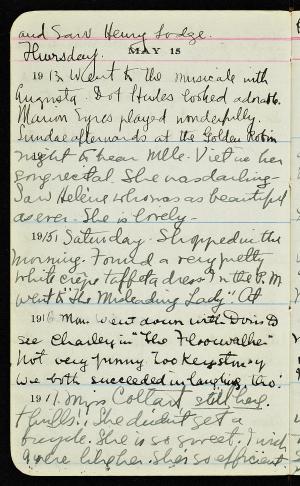 and Saw Henry Lodge.
Thursday.
MAY 15
1913 Went to the musicale with
Augusta. Dot Hules looked adorable.
Marion Eyres played wonderfully.
Sundae afterwards at the Golden Robin
night to hear Mlle. Viet in her
song recital. She was darling-
Saw Helène who was as beautiful
as ever. She is lovely-
1915 Saturday. Shopped in the
morning. Found a very pretty
white crêpe taffeta dress. In the P.M
went to "The Misleading Lady". At
1916 Mon. Went down with Doris to
see Charley in "The Floorwalker"
Not very funny. Too Keystoney
We both succeeded in laughing, tho!
191 Miss Coltart still here.
Thrills!! She didn't get a
bicycle. She is so sweet. I wish
I were like her. She's so efficient